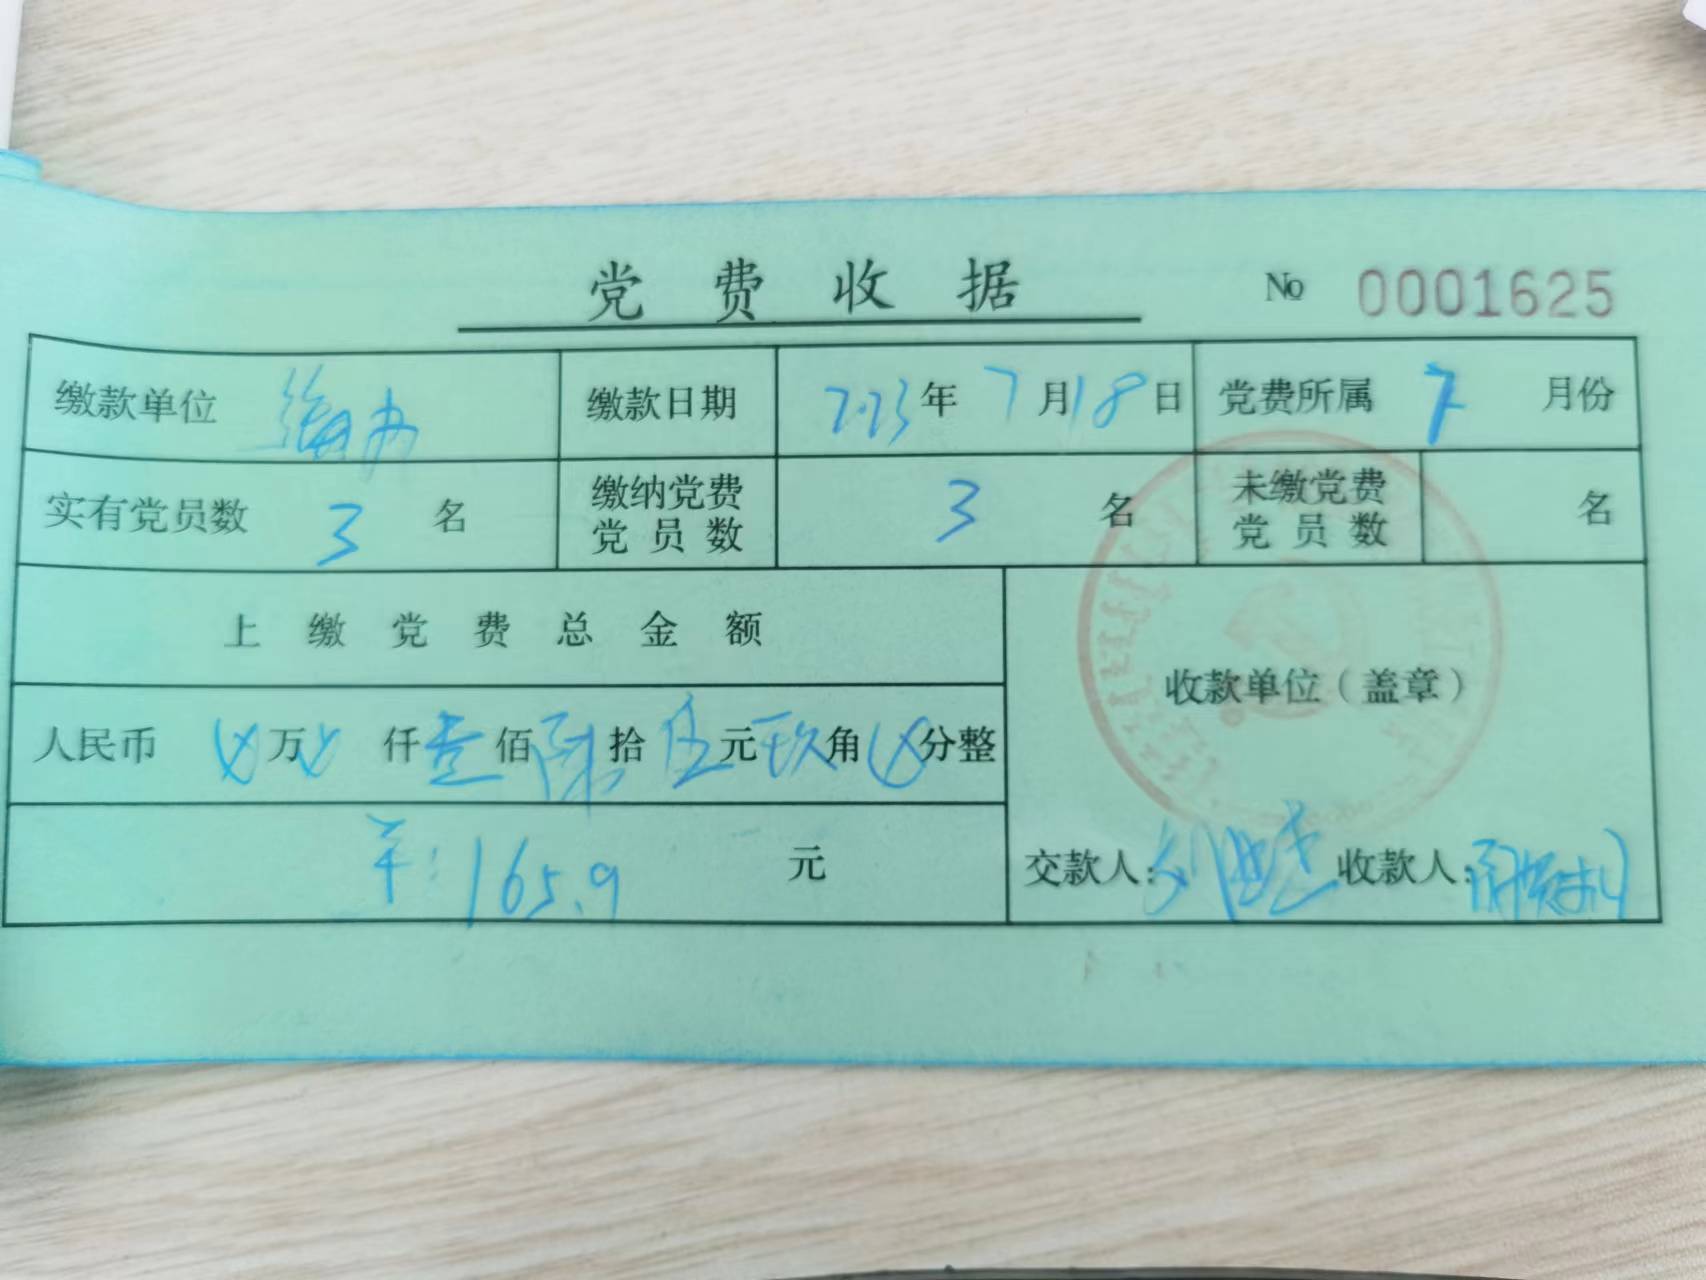 党费收据 No 0001625
缴款单位 编办 缴款日期 2023年7月18日 党费所属 7 月份
实有党员数 3 名 缴纳党费党员数 3 名 未缴党费党员数 名
上缴党费总金额
人民币 万 仟壹佰陆拾伍元玖角 分整
收款单位（盖章）
¥:165.9 元 交款人: 收款人: